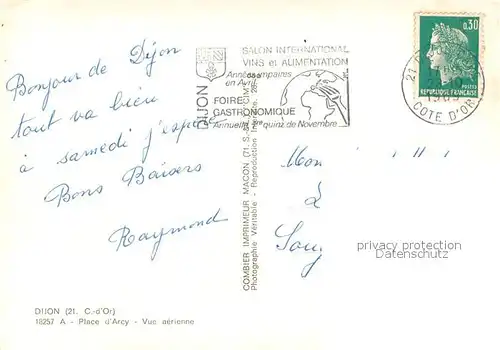 Bonjour de Dijon
tout va bien
à samedi j'espère
Bons Baisers
Raymond
DIJON (21. C.-d'Or)
18257 A - Place d'Arcy - Vue aérienne
COMBIER IMPRIMEUR MACON (71. S.-&-L.) CIM
Photographie Véritable - Reproduction Interdite
DIJON
SALON INTERNATIONAL
VINS et ALIMENTATION
Années impaires
en Avril
FOIRE
GASTRONOMIQUE
Annuelle 1ère quinz de Novembre
21
COTE D'OR
0,30
POSTES
REPUBLIQUE FRANÇAISE
Mon
privacy protection
Datenschutz